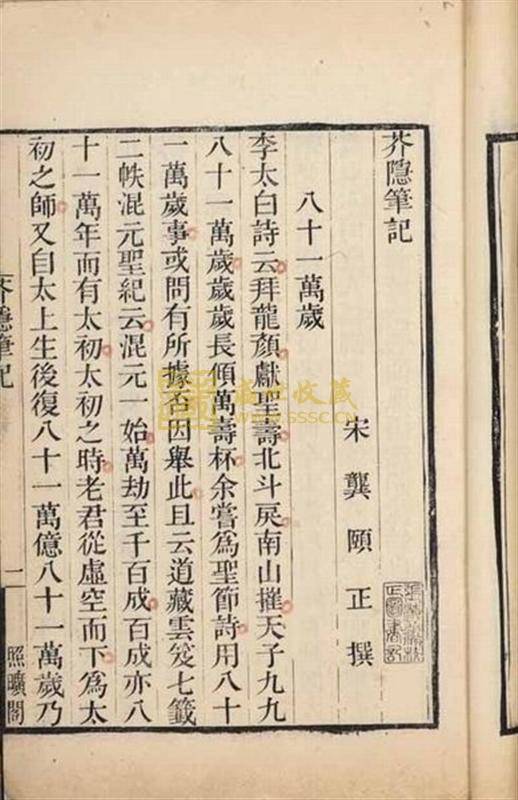 芥隱筆記
宋龔頤正撰
八十一萬歲
李太白詩云拜龍顔獻聖壽北斗戾南山摧天子九九
八十一萬歲歲歲長傾萬壽杯余嘗爲聖節詩用八十
一萬歲事或問有所據否因舉此且云道藏雲笈七籤
二帙混元聖紀云混元一始萬劫至千百成百成亦八
十一萬年而有太初太初之時老君從虛空而下爲太
初之師又自太上生後復八十一萬億八十一萬歲乃
芥隱筆記
一
照曠閣
盛世收藏
WWW.SSSC.CN